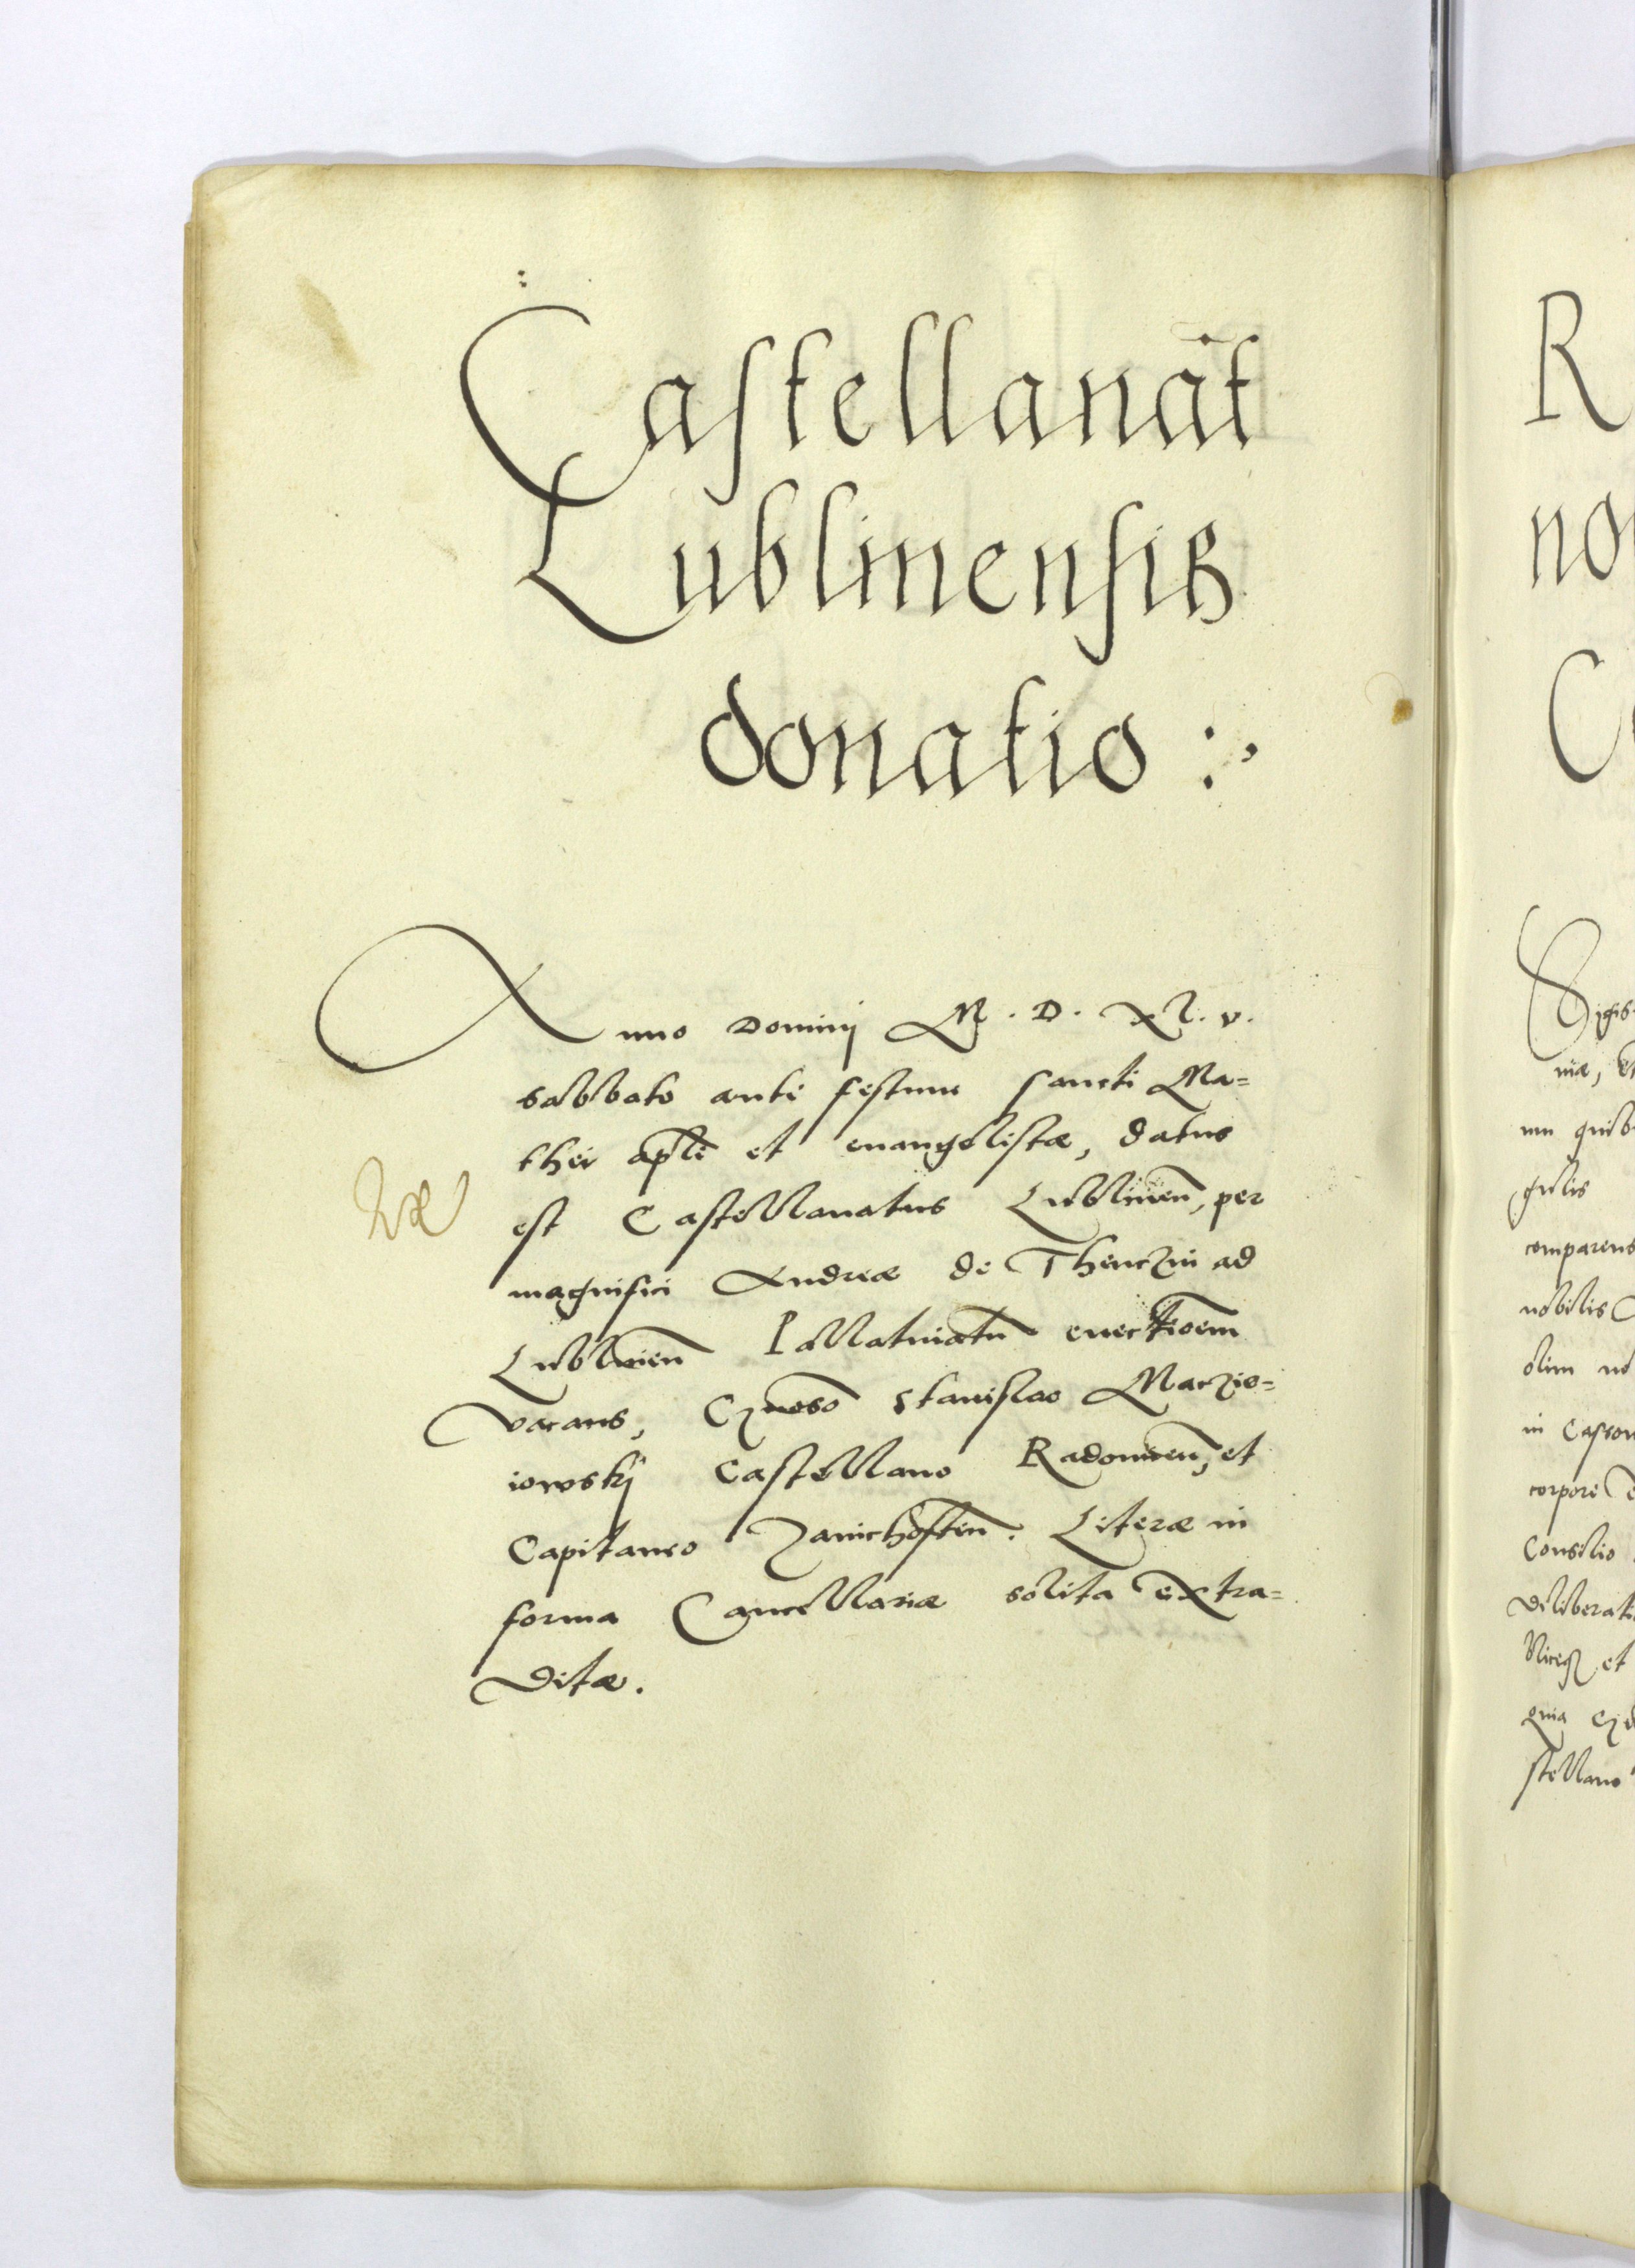 Castellanāt
Lublinensis
donatio :,
Anno Dominj M. D. XL. v.
sabbato ante festum sancti Ma=
thei apłi et euangelistæ, datus
est Castellanatus Lublineñ, per
magnifici Andreæ de Thenczin ad
Lublineñ Pallatinatū euectioem̄
vacans, Gñoso Stanislao Maczie=
iowskj Castellano Radomieñ, et
Capitaneo Zawichosteñ. Literæ in
forma Cancellariæ solita extra=
ditæ.
R
no
C
Sigis
niæ,
um quib
gulis
comparens
nobilis
olim no
in Casso
corpore
Consilio
deliberati
et
quia
stellano